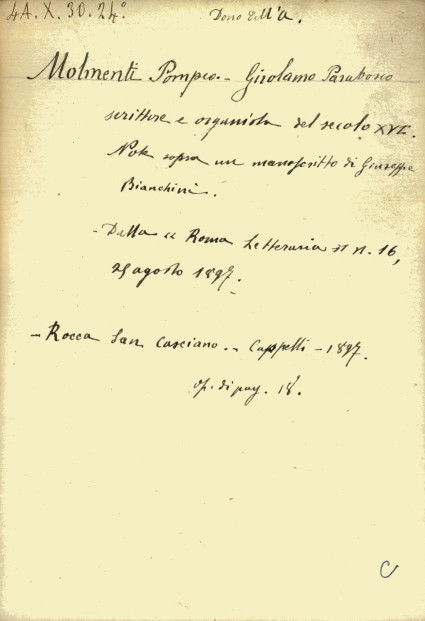 4A.X.30.24°
Dono dell'A.
Molmenti Pompeo. - Girolamo Parabosco
scrittore e organista del secolo XVI.
Note sopra un manoscritto di Giuseppe
Bianchini.
- Dalla « Roma Letteraria » n. 16,
25 agosto 1897.
- Rocca San Casciano. - Cappelli - 1897.
op. di pag. 18.
C